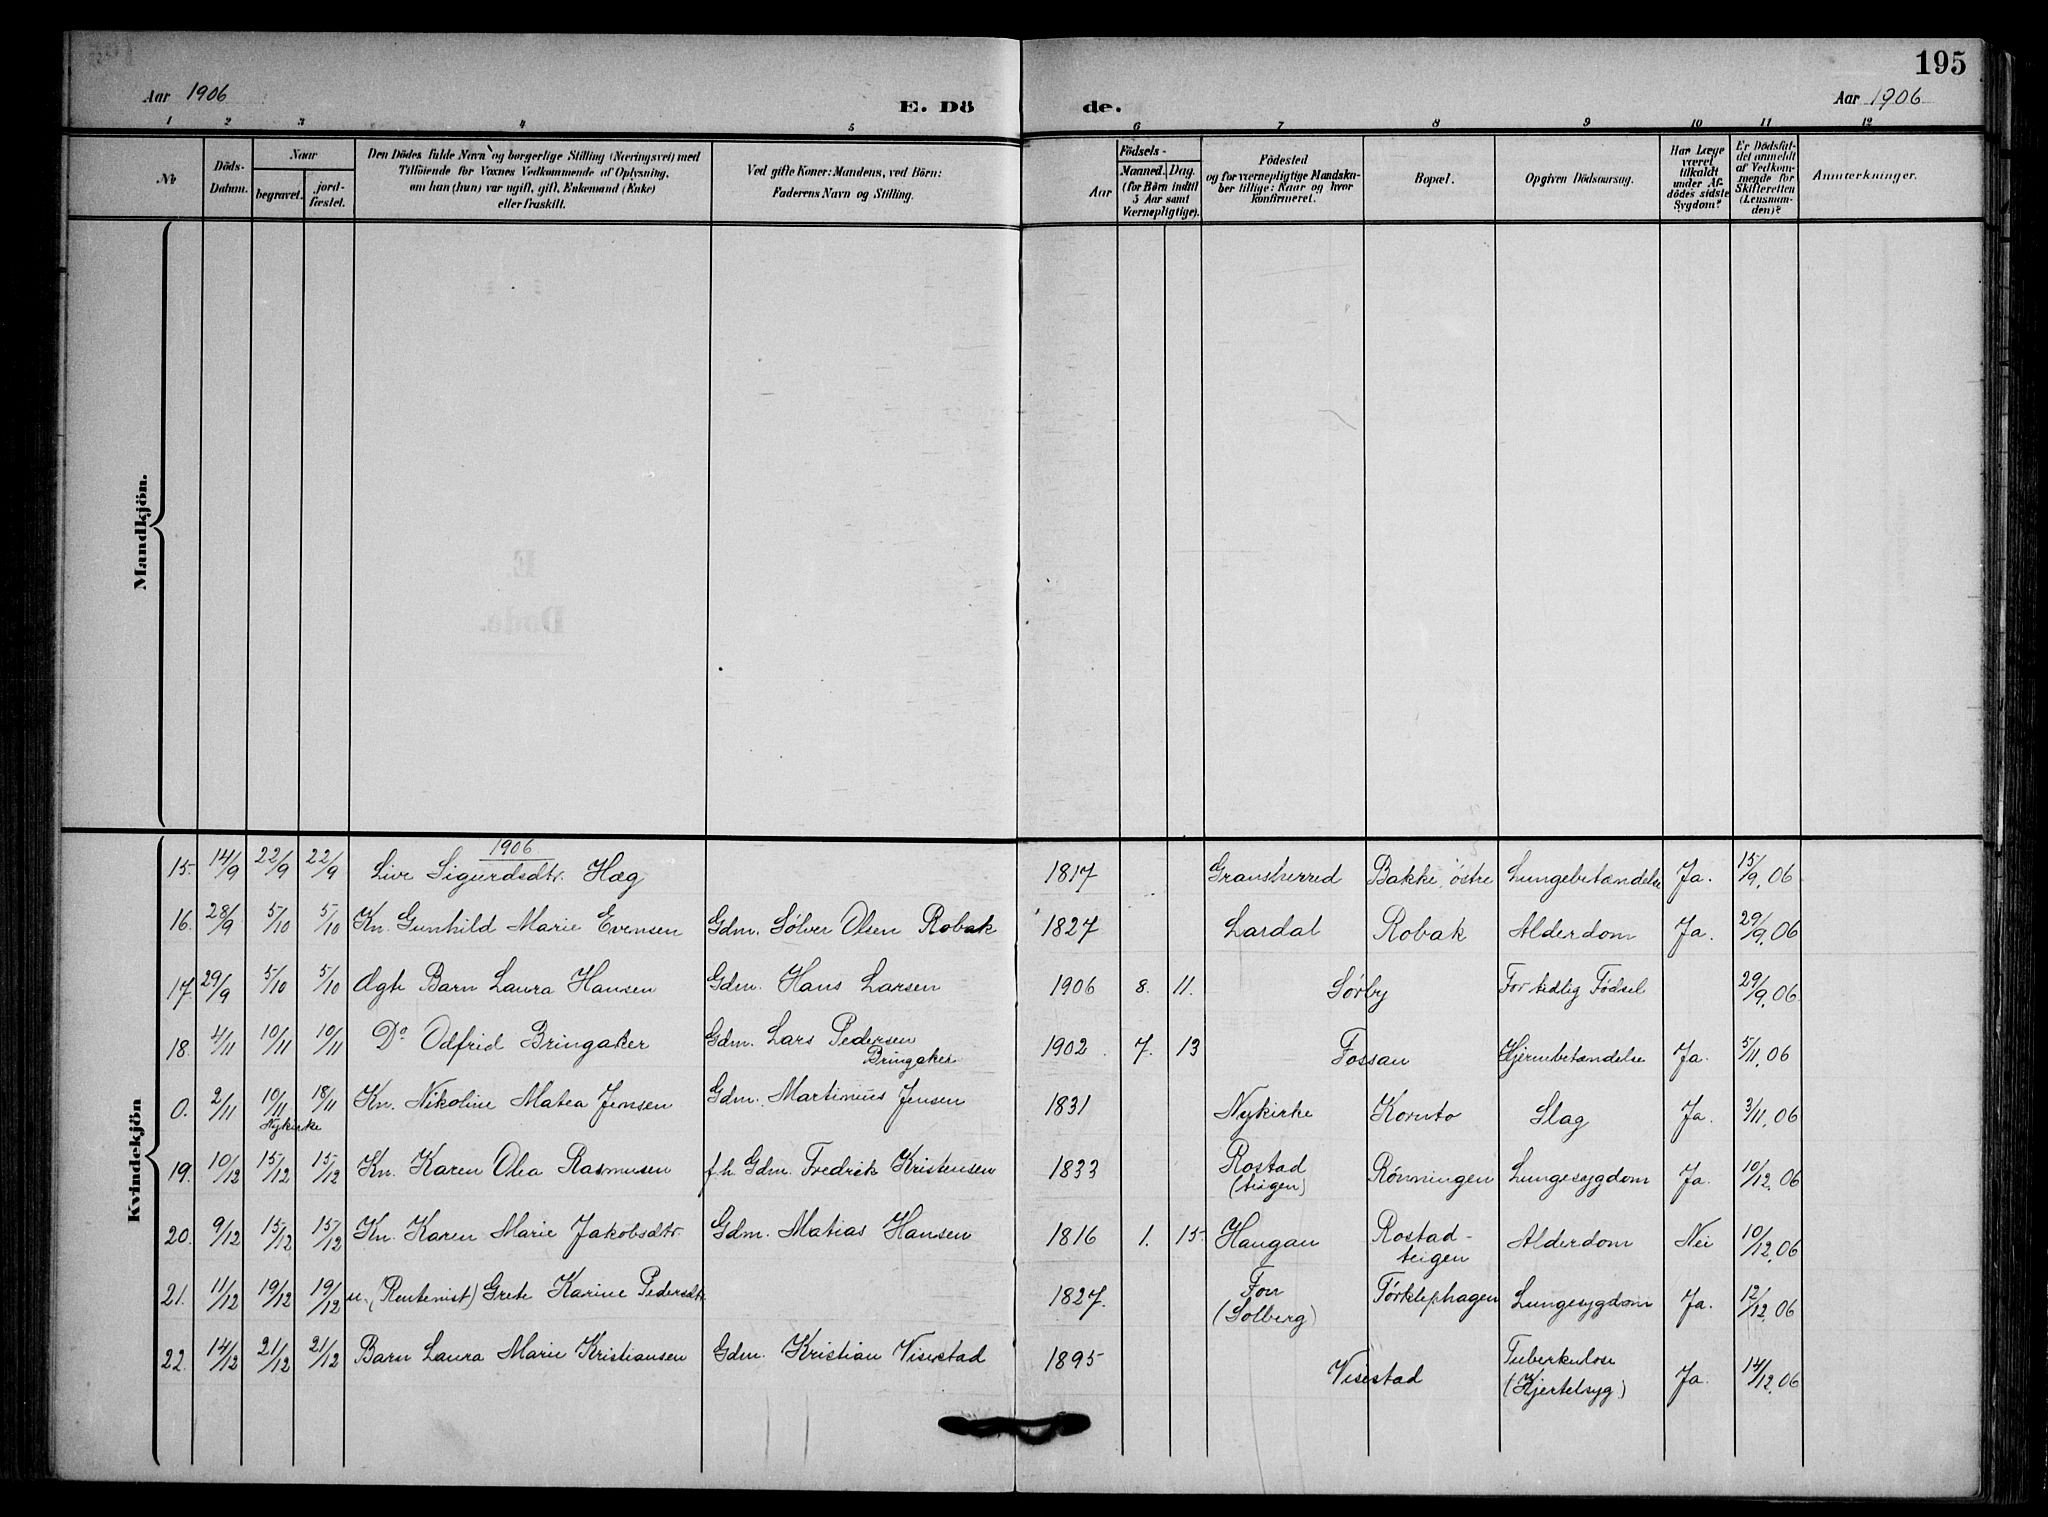 195
Aar 1906
E. Dö
de.
Aar 1906
1 2 3 4 5 6 7 8 9 10 11 12
No
Döds-
Datum.
Naar
begravet.
jord-
fæstet.
Den Dödes fulde Navn og borgerlige Stilling (Næringsvei) med
Tilföiende for Voxnes Vedkommende af Oplysning,
om han (hun) var ugift, gift, Enkemand (Enke)
eller fraskilt.
Ved gifte Koner: Mandens, ved Börn:
Faderens Navn og Stilling.
Födsels-
Aar
Maaned. Dag.
(for Börn indtil
5 Aar samt
Værnepligtige).
Födested
og for værnepligtige Mandska-
ber tillige: Naar og hvor
konfirmeret.
Bopæl.
Opgiven Dödsaarsag.
Har Læge
været
tilkaldt
under Af-
dödes sidste
Sygdom?
Er Dödsfal-
det anmeldt
af Vedkom-
mende for
Skifteretten
(Lensman-
den)?
Anmærkninger.
Mandkjön.
Kvindekjön
1906
15. 14/9 22/9 22/9 Live Sigurdsdtr. Hæg 1817 Gransherred Bakke, østre Lungebetændelse Ja. 15/9.06
16. 28/9 5/10 5/10 Kn. Gunhild Marie Evensen Gdm. Sølver Olsen Robak 1827 Lardal Robak Alderdom Ja. 29/9.06
17. 29/9 5/10 5/10 Ægte Barn Laura Hansen Gdm. Hans Larsen 1906 8. 11. Sørby For tidlig Fødsel 29/9.06
18. 4/11 10/11 10/11 Do Odfrid Bringaker Gdm. Lars Pedersen
Bringaker 1902 7. 13 Fossan Hjernebetændelse Ja. 5/11.06
0. 2/11 10/11 18/11 Kn. Nikoline Matea Jensen Gdm. Martinius Jensen 1831 Nykirke Kornto Slag Ja. 3/11.06
Nykirke
19. 10/12 15/12 15/12 Kn. Karen Olea Rasmusen f.h. Gdm. Fredrik Kristensen 1833 Rostad
(teigen) Rønningen Lungesygdom Ja. 10/12.06
20. 9/12 15/12 15/12 Kn. Karen Marie Jakobsdtr. Gdm. Matias Hansen 1816 1. 15. Haugan Rostad-
teigen Alderdom Nei 10/12.06
21. 11/12 19/12 19/12 u. (Rentenist) Grete Karine Pedersdtr. 1827. Fon
(Solberg) Tørklephagen Lungesygdom Ja. 12/12.06
22. 14/12 21/12 21/12 Barn Laura Marie Kristiansen Gdm. Kristian Visestad 1895 Visestad Tuberkulose
(Kjertelsyg) Ja. 14/12.06